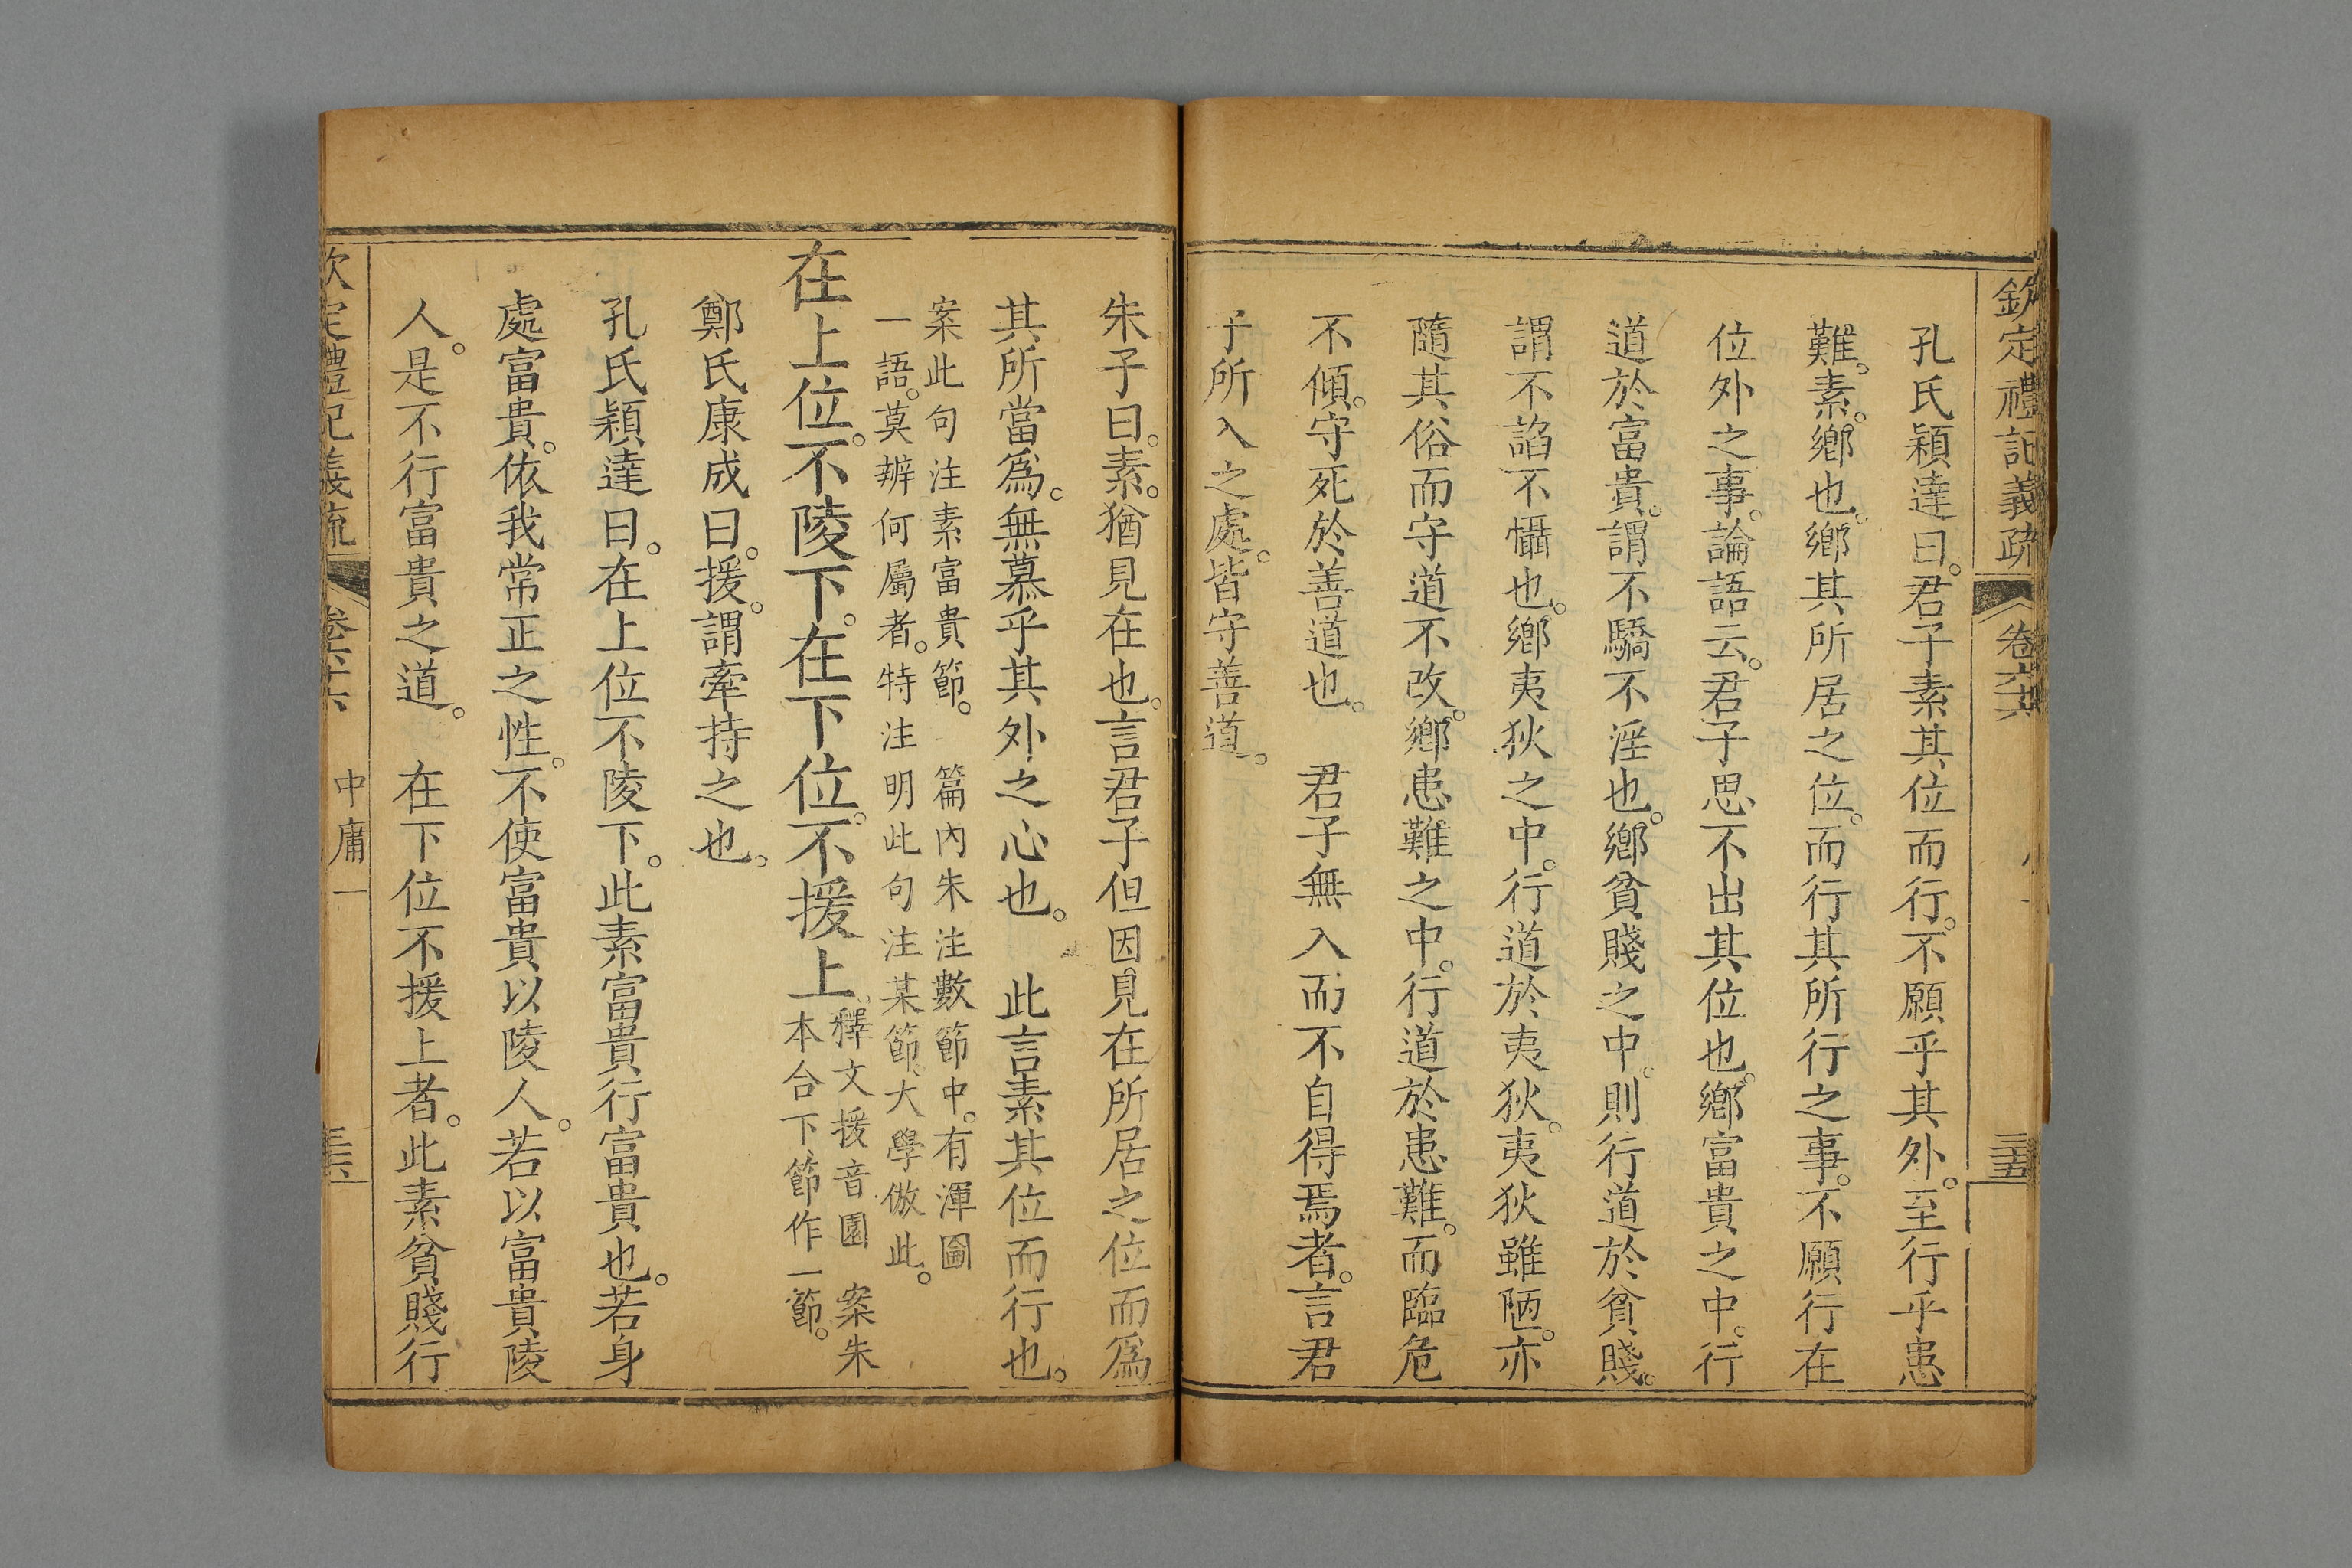 欽定禮記義疏 卷六十六 三五
孔氏穎達曰。君子素其位而行。不願乎其外。至行乎患
難。素。鄉也。鄉其所居之位。而行其所行之事。不願行在
位外之事。論語云。君子思不出其位也。鄉富貴之中。行
道於富貴。謂不驕不淫也。鄉貧賤之中。則行道於貧賤。
謂不諂不懾也。鄉夷狄之中。行道於夷狄。夷狄雖陋。亦
隨其俗而守道不改。鄉患難之中。行道於患難。而臨危
不傾。守死於善道也。 君子無入而不自得焉者。言君
子所入之處。皆守善道。
朱子曰。素。猶見在也。言君子但因見在所居之位而爲
其所當爲。無慕乎其外之心也。 此言素其位而行也。
案此句注素富貴節。 篇內朱注數節中。有渾圇
一語。莫辨何屬者。特注明此句注某節。大學倣此。
在上位。不陵下。在下位。不援上。
釋文援音園 案朱
本合下節作一節。
鄭氏康成曰。援。謂牽持之也。
孔氏穎達曰。在上位不陵下。此素富貴行富貴也。若身
處富貴。依我常正之性。不使富貴以陵人。若以富貴陵
人。是不行富貴之道。 在下位不援上者。此素貧賤行
欽定禮記義疏 卷六十六 中庸一